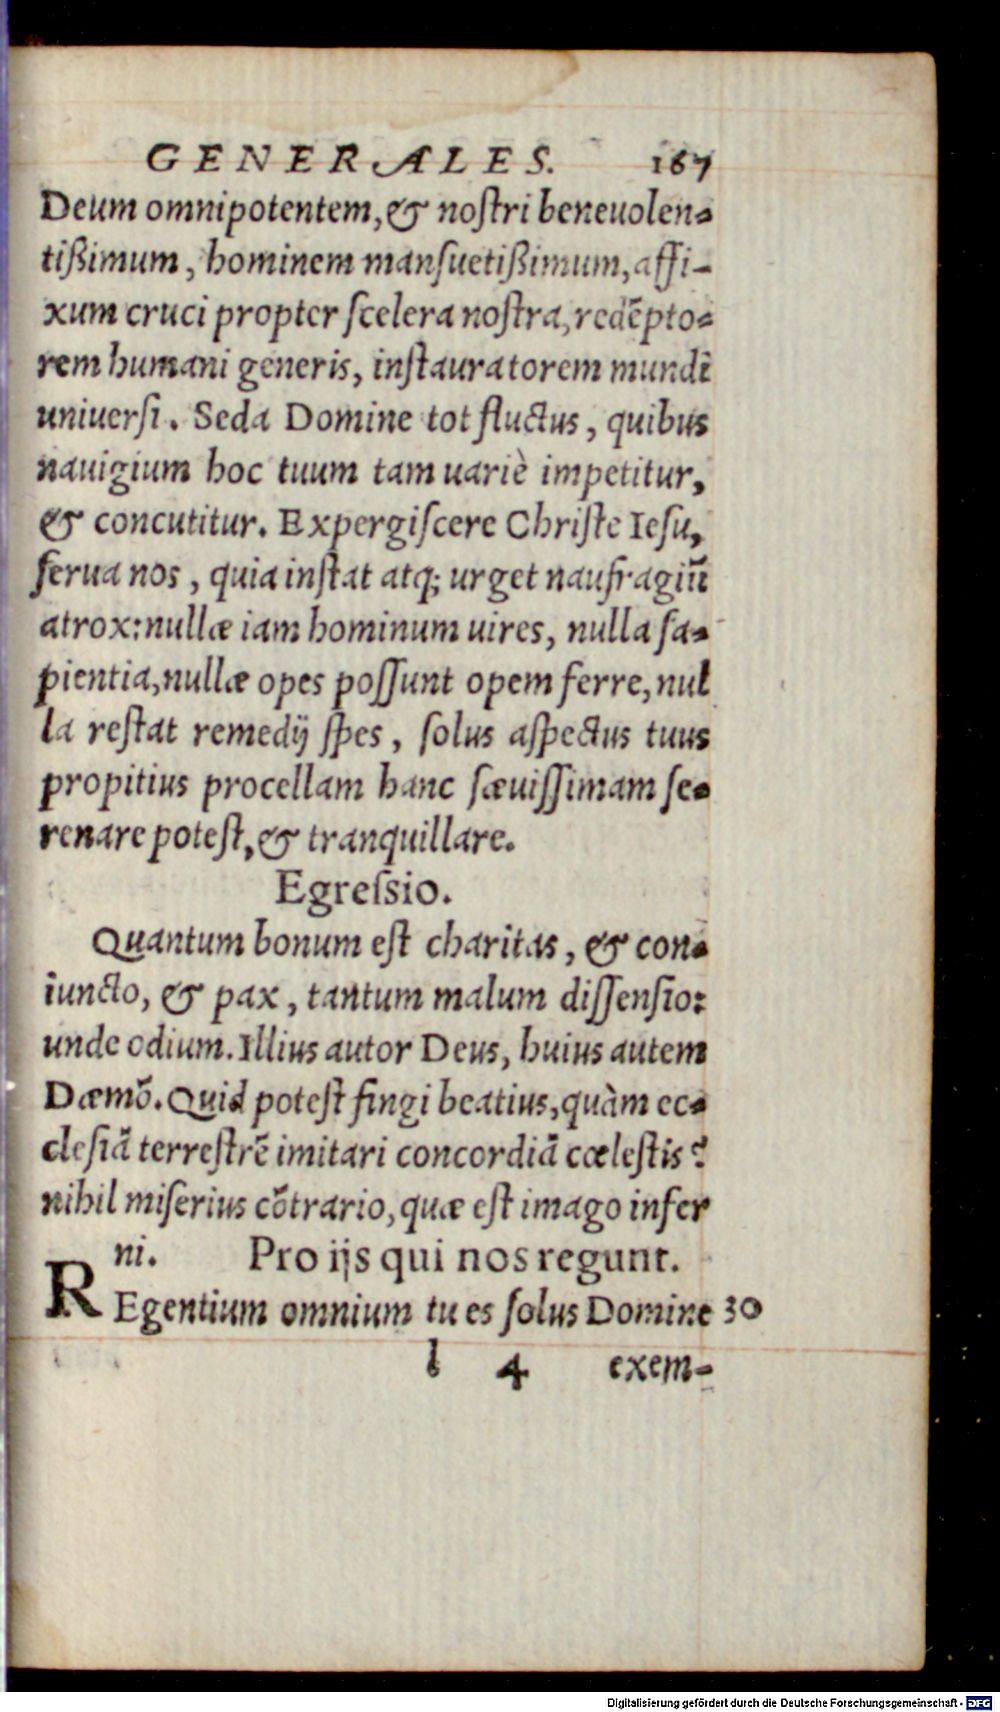 GENERALES. 167
Deum omnipotentem, & noſtri beneuolen-
tißimum, hominem manſuetißimum, affi-
xum cruci propter ſcelera noſtra, redẽpto-
rem humani generis, inſtauratorem mundi
uniuerſi. Seda Domine tot fluctus, quibus
nauigium hoc tuum tam uariè impetitur,
& concutitur. Expergiſcere Chriſte Ieſu,
ſerua nos, quia inſtat atq; urget naufragiũ
atrox: nullæ iam hominum uires, nulla ſa-
pientia, nullæ opes poſſunt opem ferre, nul
la reſtat remedij ſpes, ſolus aſpectus tuus
propitius procellam hanc ſæuiſſimam ſe-
renare poteſt, & tranquillare.
Egreſsio.
Quantum bonum eſt charitas, & con-
iuncto, & pax, tantum malum diſſenſio:
unde odium. Illius autor Deus, huius autem
Dæmõ. Quid poteſt fingi beatius, quàm ec-
cleſiã terreſtrẽ imitari concordiã cœleſtis?
nihil miſerius cõtrario, quæ eſt imago infer
ni. Pro ijs qui nos regunt.
REgentium omnium tu es ſolus Domine 30
l 4 exem-
Digitalisierung gefördert durch die Deutsche Forschungsgemeinschaft - DFG